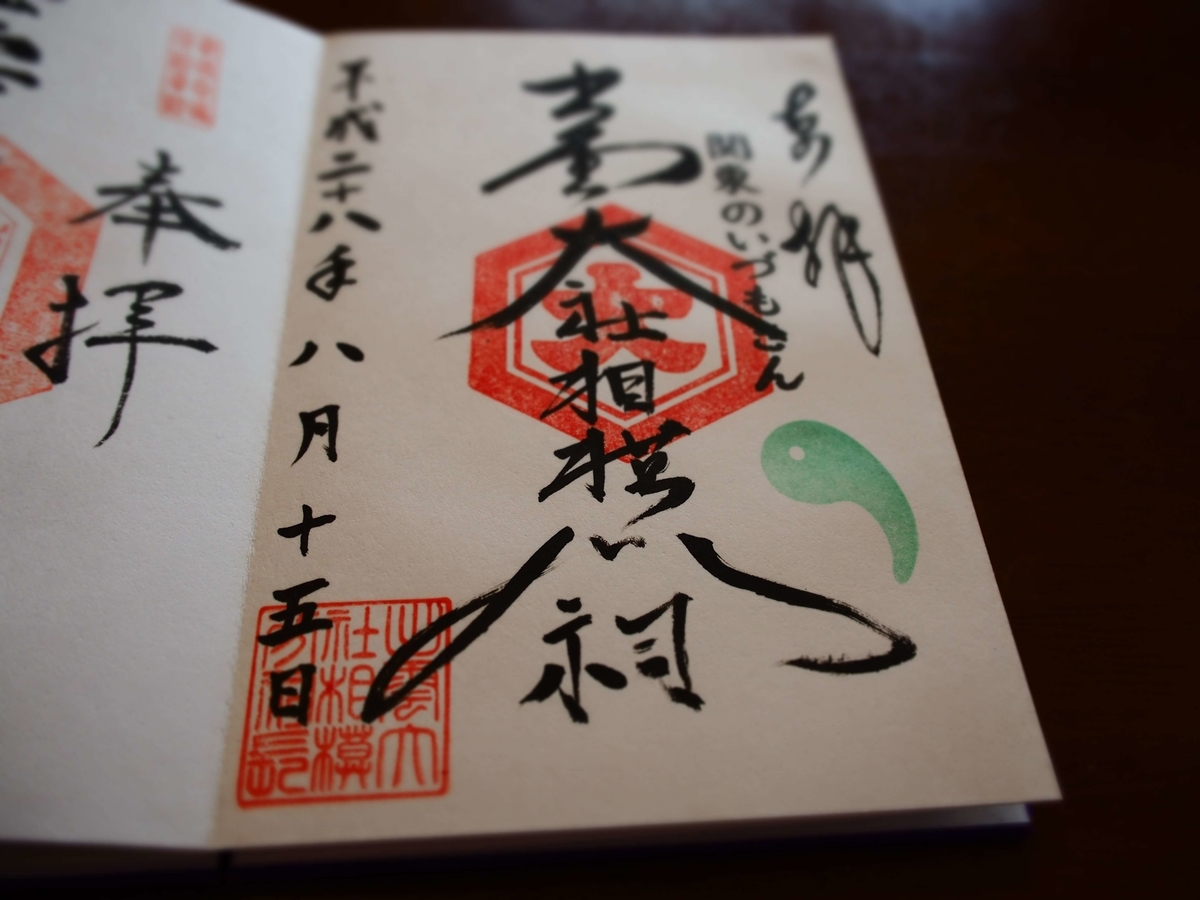 奉拝
関東のいづもさん
出雲大社相模分祠
平成二十八年八月十五日
出雲大
社相模
分祠印
奉拝